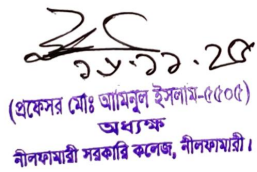 ১৮.১১.২৫
(প্রফেসর মোঃ আমিনুল ইসলাম-৫৫০৫)
অধ্যক্ষ
নীলফামারী সরকারি কলেজ, নীলফামারী।